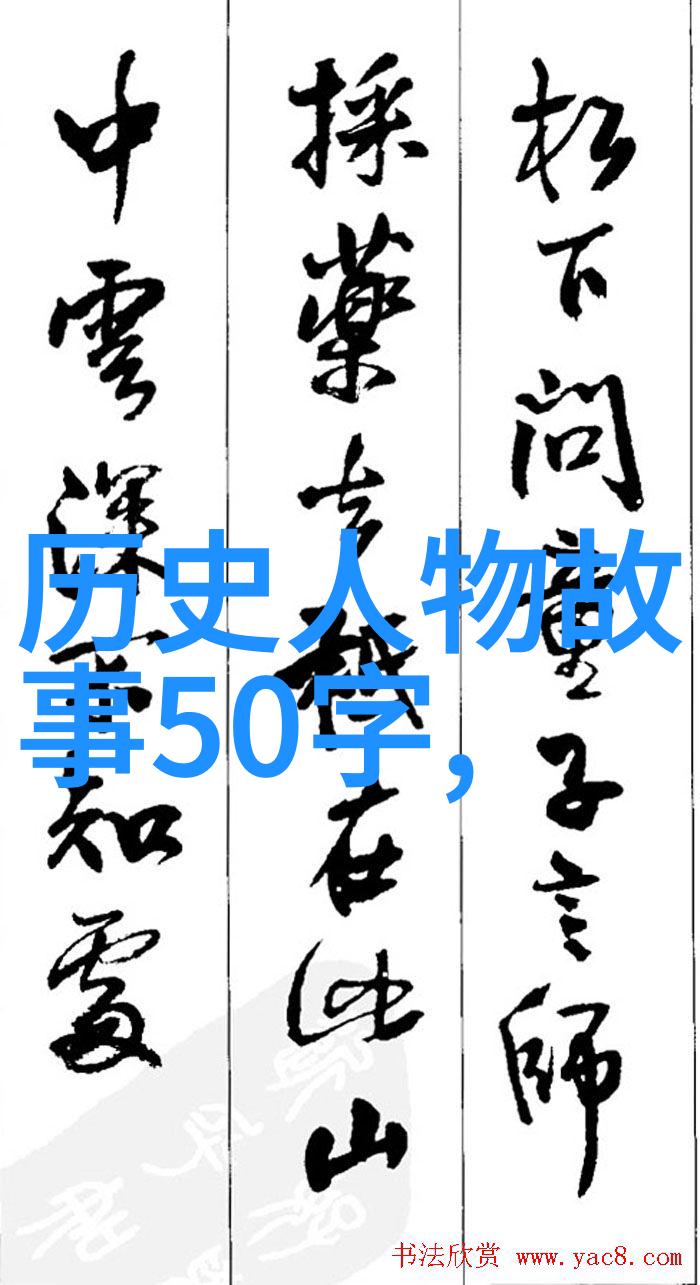 松下问童子言師
採藥去秖在此山
中雲深不知處
历史人物故
事50字，
书法欣赏 www.yac8.com